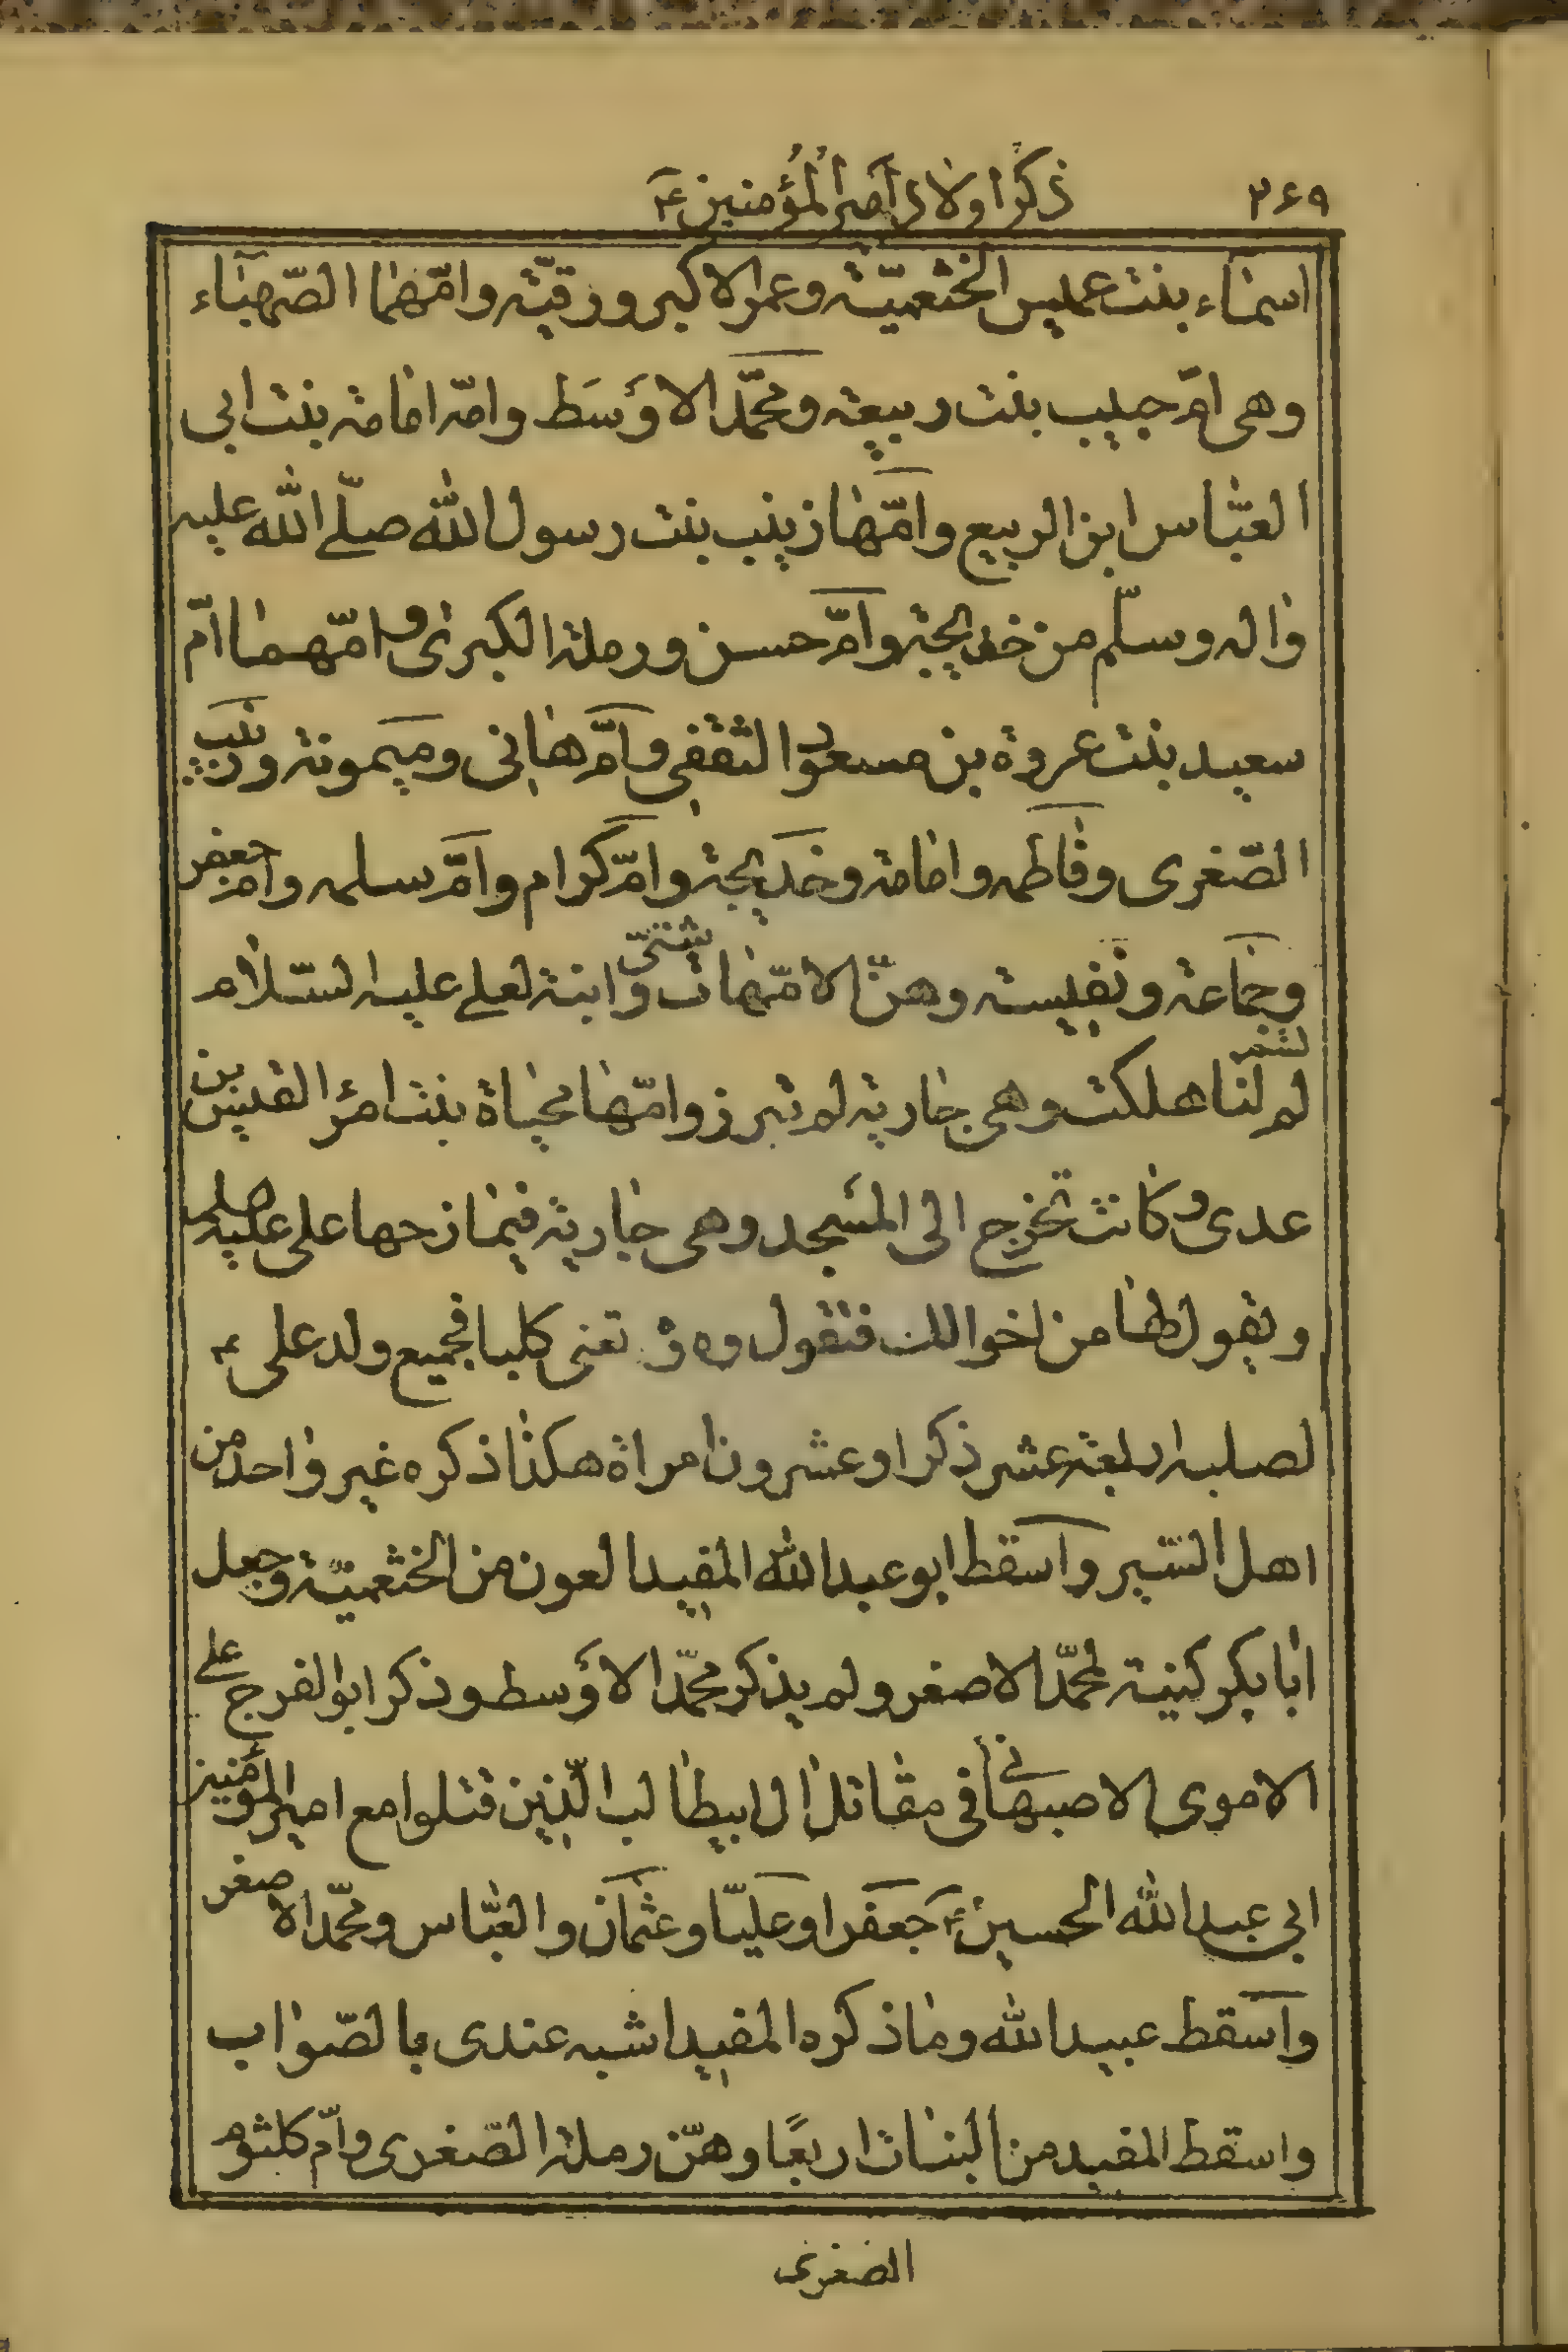 ۳۶۹ ذكر اولاد امير المؤمنين ع
اسماء بنت عميس الخثعميّة وعمر الاكبر ورقيّة وامّهما الصّهباء
وهى امّ حبيب بنت ربيعة ومحمّد الاوسَط وامّه امامة بنت ابى
العبّاس ابن الربيع وامّها زينب بنت رسول الله صلّى الله عليه
واله وسلّم من خديجة وامّ حسن ورملة الكبرى وامّهما امّ
سعيد بنت عروة بن مسعود الثقفى وامّ هانى وميمونة وزينب
الصّغرى وفاطمه وامامة وخديجة وامّ كرام وامّ سلمه وامّ جعفر
وجماعة ونفيسة وهنّ لامّهات شتّى وابنة لعلى عليه السّلام
لم تسمّ لنا هلكت وهى جارية لم تبرز وامّها محياة بنت امرؤ القيس بن
عدى وكانت تخرج الى المسجد وهى جارية فيمازحها على عليه السلم
ويقول لها من اخوالك فتقول وه وه تعنى كلبا فجميع ولد على ع
لصلبه اربعة عشر ذكرا وعشرون امراة هكذا ذكره غير واحد من
اهل السّير واسقط ابو عبد الله المفيد العون من الخثعميّة وجعل
ابا بكر كنية لمحمّد الاصغر ولم يذكر محمّد الاوسط وذكر ابو الفرج على
الاموى الاصبهانى فى مقاتل ال ابيطالب الّذين قتلوا مع امير المؤمنين
ابى عبد الله الحسين ع جعفرا وعليّا وعثمان والعبّاس ومحمّد الاصغر
واسقط عبيد الله وما ذكره المفيد اشبه عندى بالصّواب
واسقط المفيد من البنات اربعًا وهنّ رملة الصّغرى وامّ كلثوم
الصغرى